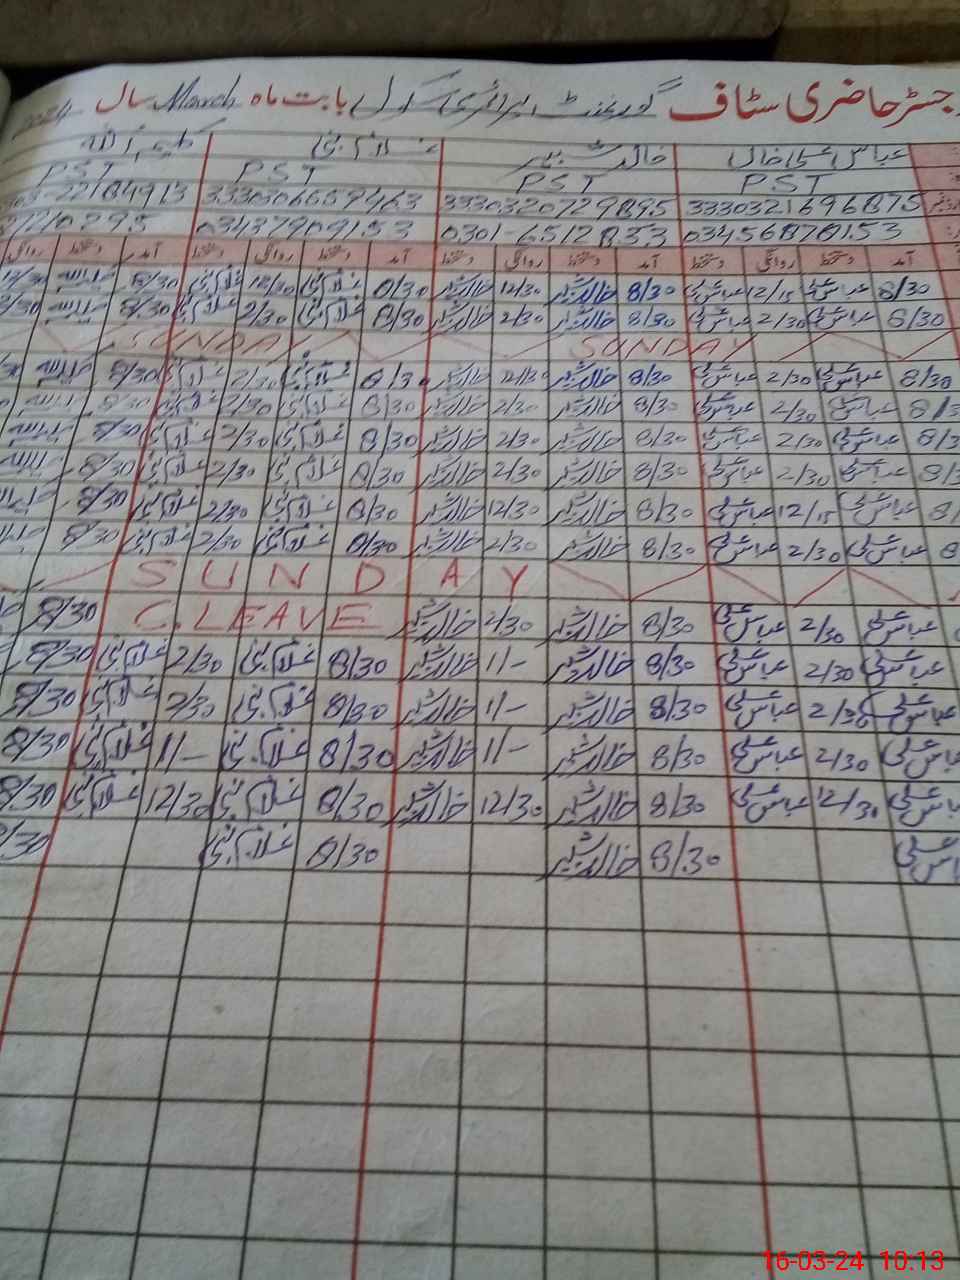 رجسٹر حاضری سٹاف گورنمنٹ پرائمری سکول بابت ماہ March سال 2024
عباس علی خان خالد شبیر غلام نبی کلیم اللہ
PST PST PST PST
3330321696875 3330320729895 3330306659463 22184913
03456870153 0301-6512833 03437909153 295
آمد دستخط روانگی دستخط آمد دستخط روانگی دستخط آمد دستخط روانگی دستخط آمد دستخط روانگی
8/30 عباس علی 12/15 عباس علی 8/30 خالد شبیر 12/30 خالد شبیر 8/30 غلام نبی 12/30 غلام نبی 8/30 12/30
8/30 عباس علی 2/30 عباس علی 8/30 خالد شبیر 2/30 خالد شبیر 8/30 غلام نبی 2/30 غلام نبی 8/30 2/30
SUNDAY SUNDAY
8/30 عباس علی 2/30 عباس علی 8/30 خالد شبیر 12/30 خالد شبیر 8/30 غلام نبی 2/30 غلام نبی 8/30
عباس علی 2/30 عباس علی 8/30 خالد شبیر 2/30 خالد شبیر 8/30 غلام نبی 2/30 غلام نبی 8/30
عباس علی 2/30 عباس علی 8/30 خالد شبیر 2/30 خالد شبیر 8/30 غلام نبی 2/30 غلام نبی 8/30
عباس علی 2/30 عباس علی 8/30 خالد شبیر 2/30 خالد شبیر 8/30 غلام نبی 2/30 غلام نبی 8/30
عباس علی 12/15 عباس علی 8/30 خالد شبیر 12/30 خالد شبیر 8/30 غلام نبی 2/30 غلام نبی 8/30
عباس علی 2/30 عباس علی 8/30 خالد شبیر 2/30 خالد شبیر 8/30 غلام نبی 2/30 غلام نبی 8/30
SUNDAY
عباس علی 2/30 عباس علی 8/30 خالد شبیر 2/30 خالد شبیر C.LEAVE 8/30
عباس علی 2/30 عباس علی 8/30 خالد شبیر 1/- خالد شبیر 8/30 غلام نبی 2/30 غلام نبی 8/30
عباس علی 2/30 عباس علی 8/30 خالد شبیر 1/- خالد شبیر 8/30 غلام نبی 2/30 غلام نبی 8/30
عباس علی 2/30 عباس علی 8/30 خالد شبیر 1/- خالد شبیر 8/30 غلام نبی 1/- غلام نبی 8/30
عباس علی 12/30 عباس علی 8/30 خالد شبیر 12/30 خالد شبیر 8/30 غلام نبی 12/30 غلام نبی 8/30
عباس علی 8/30 خالد شبیر 8/30 غلام نبی 8/30
16-03-24 10:13